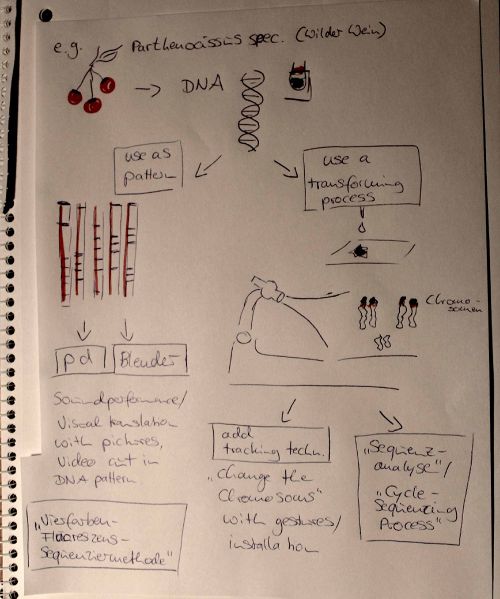 e.g. Parthenocissus spec. (Wilder Wein)
→ DNA
use as
pattern
use a
transforming
process
Chromo-
somen
pd
Blender
Soundperformance/
Visual translation
with pictures,
Video cut in
DNA pattern
"Vierfarben-
Fluoreszens-
Sequenziermethode"
add
tracking techn.
"Change the
Chromosoms"
with gestures/
installation
"Sequenz-
analyse"/
"Cycle-
Sequenzing
Process"